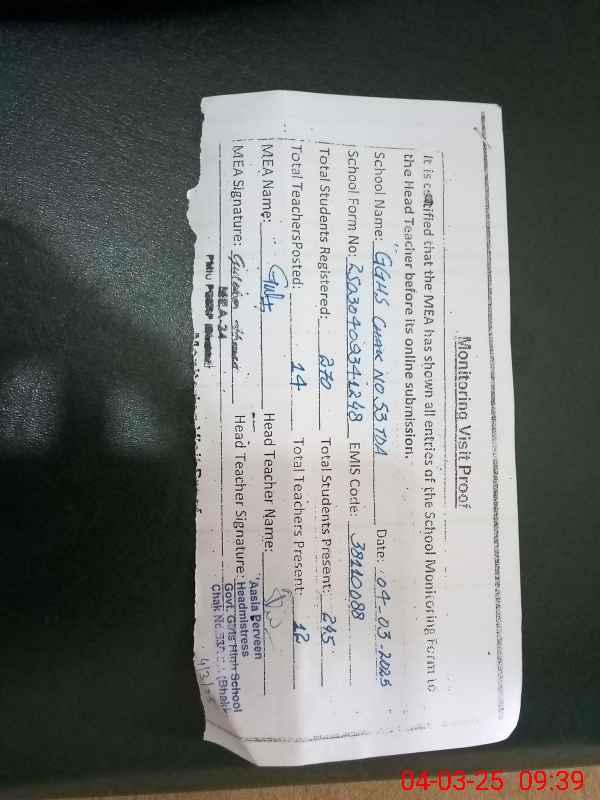 Monitoring Visit Proof
It is certified that the MEA has shown all entries of the School Monitoring Form to
the Head Teacher before its online submission.
School Name: GGHS CHAK NO 53 TDA Date: 04-03-2025
School Form No: 25030409341248 EMIS Code: 38110088
Total Students Registered: 270 Total Students Present: 245
Total TeachersPosted: 14 Total Teachers Present: 12
MEA Name: Head Teacher Name:
MEA Signature: Head Teacher Signature:
MEA-34
PMIU
Aasia Perveen
Headmistress
Govt. Girls High School
Chak No.
4/3/25
04-03-25 09:39